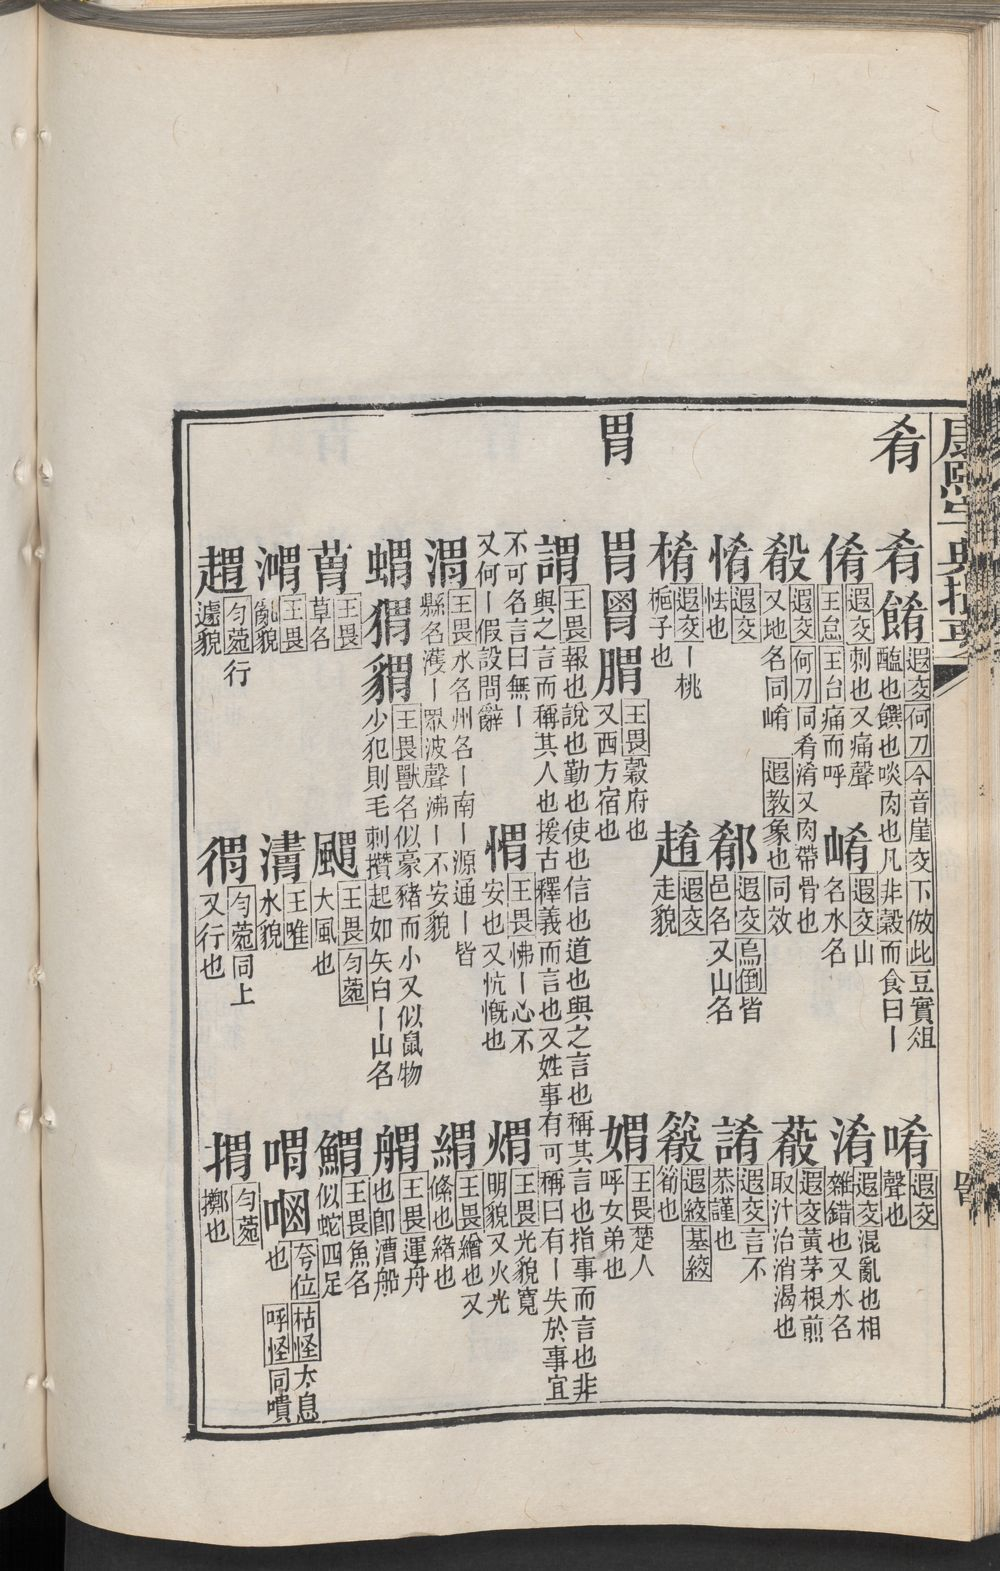 康熙字典撮要
肴
肴餚遐交何刀今音崖交下倣此豆實俎醢也饌也啖肉也凡非穀而食曰｜
唷遐交聲也
倄遐交刺也又痛聲王怠王台痛而呼
崤遐交山名水名
淆遐交混亂也相雜錯也又水名
殽遐交何刀同肴淆又肉帶骨也又地名同崤遐教象也同效
蔱遐交黃茅根煎取汁治消渴也
㤊遐交怯也
郩遐交烏倒皆邑名又山名
誵遐交言不恭謹也
桸遐交｜桃梔子也
趙遐交走貌
筱遐絞基絞筍也
胃
胃𦞅腪王畏穀府也又西方宿也
媦王畏楚人呼女弟也
謂王畏報也說也勤也使也信也道也與之言也稱其言也指事而言也非與之言而稱其人也援古釋義而言也又姓事有可稱曰有｜失於事宜不可名言曰無｜又何｜假設問辭
愲王畏怫｜心不安也又忼慨也
煟王畏光貌寬明貌又火光
渭王畏水名州名｜南｜源通｜皆縣名濩｜眾波聲沸｜不安貌
緭王畏繒也又絛也緒也
蝟猬貗王畏獸名似豪豬而小又似鼠物少犯則毛刺攢起如矢白｜山名
艒王畏運舟也卽漕船
葿王畏草名
颶王畏勻薳大風也
鰃王畏魚名似蛇四足
鴻王畏亂貌
潽王唯水貌
喟嘳夸位枯怪太息也呼怪同嘳
趯勻薳行遽貌
徟勻薳同上又行也
揟勻薳擲也